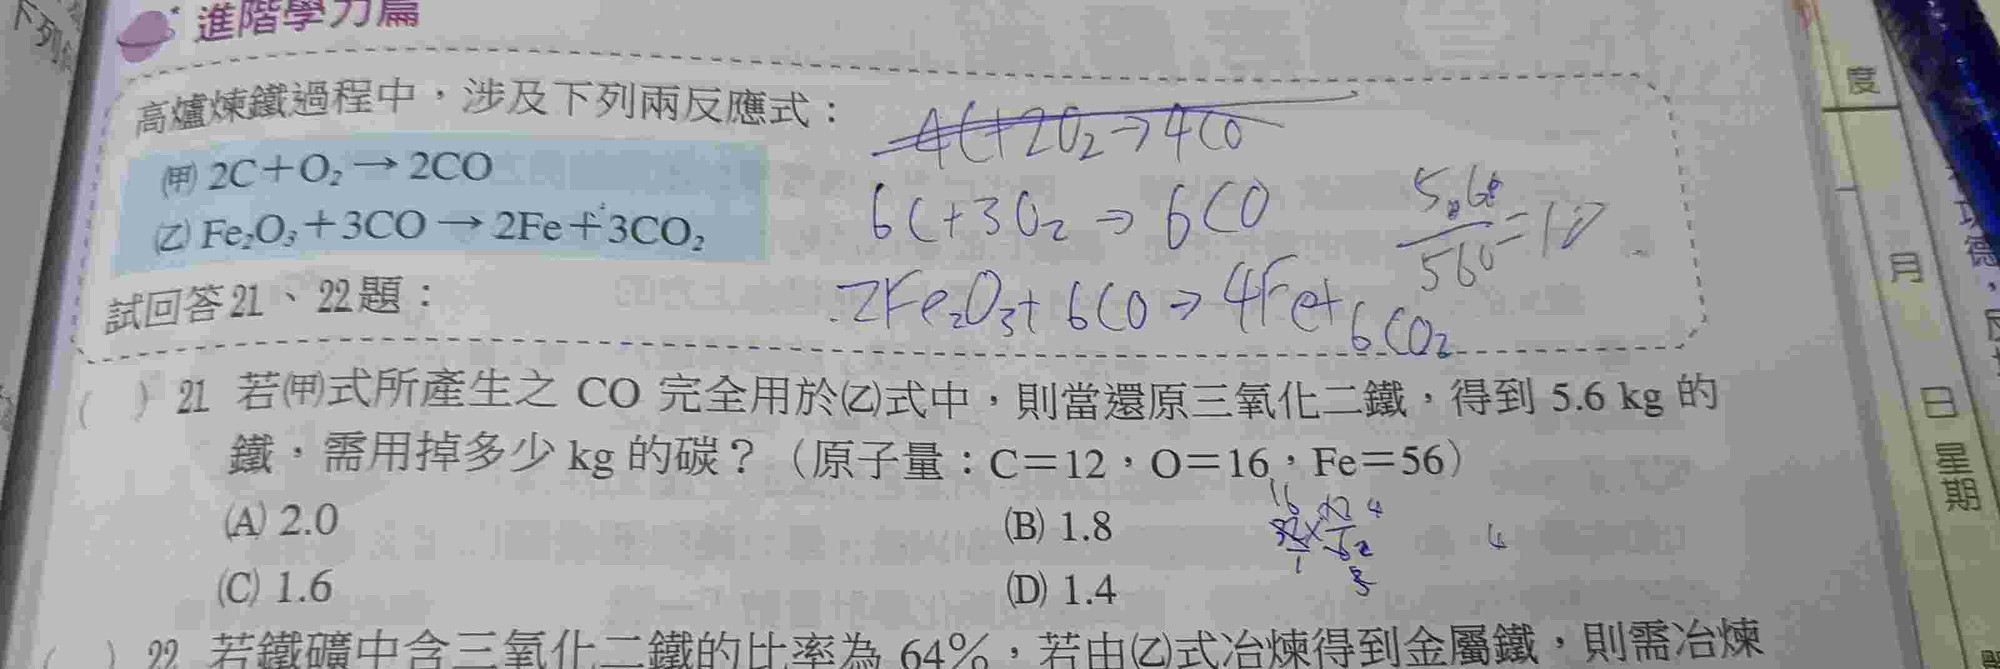 下列
進階學力篇
高爐煉鐵過程中，涉及下列兩反應式：
㈙ 2C＋O₂→2CO
㈚ Fe₂O₃＋3CO→2Fe＋3CO₂
試回答21、22題：
4C+2O₂→4CO
6C+3O₂→6CO
2Fe₂O₃+6CO→4Fe+6CO₂
( ) 21 若㈙式所產生之 CO 完全用於㈚式中，則當還原三氧化二鐵，得到 5.6 kg 的
鐵，需用掉多少 kg 的碳？（原子量：C＝12，O＝16，Fe＝56）
(A) 2.0
(B) 1.8
(C) 1.6
(D) 1.4
( ) 22 若鐵礦中含三氧化二鐵的比率為 64%，若由㈚式冶煉得到金屬鐵，則需冶煉
4
度
月
日
星
期
德